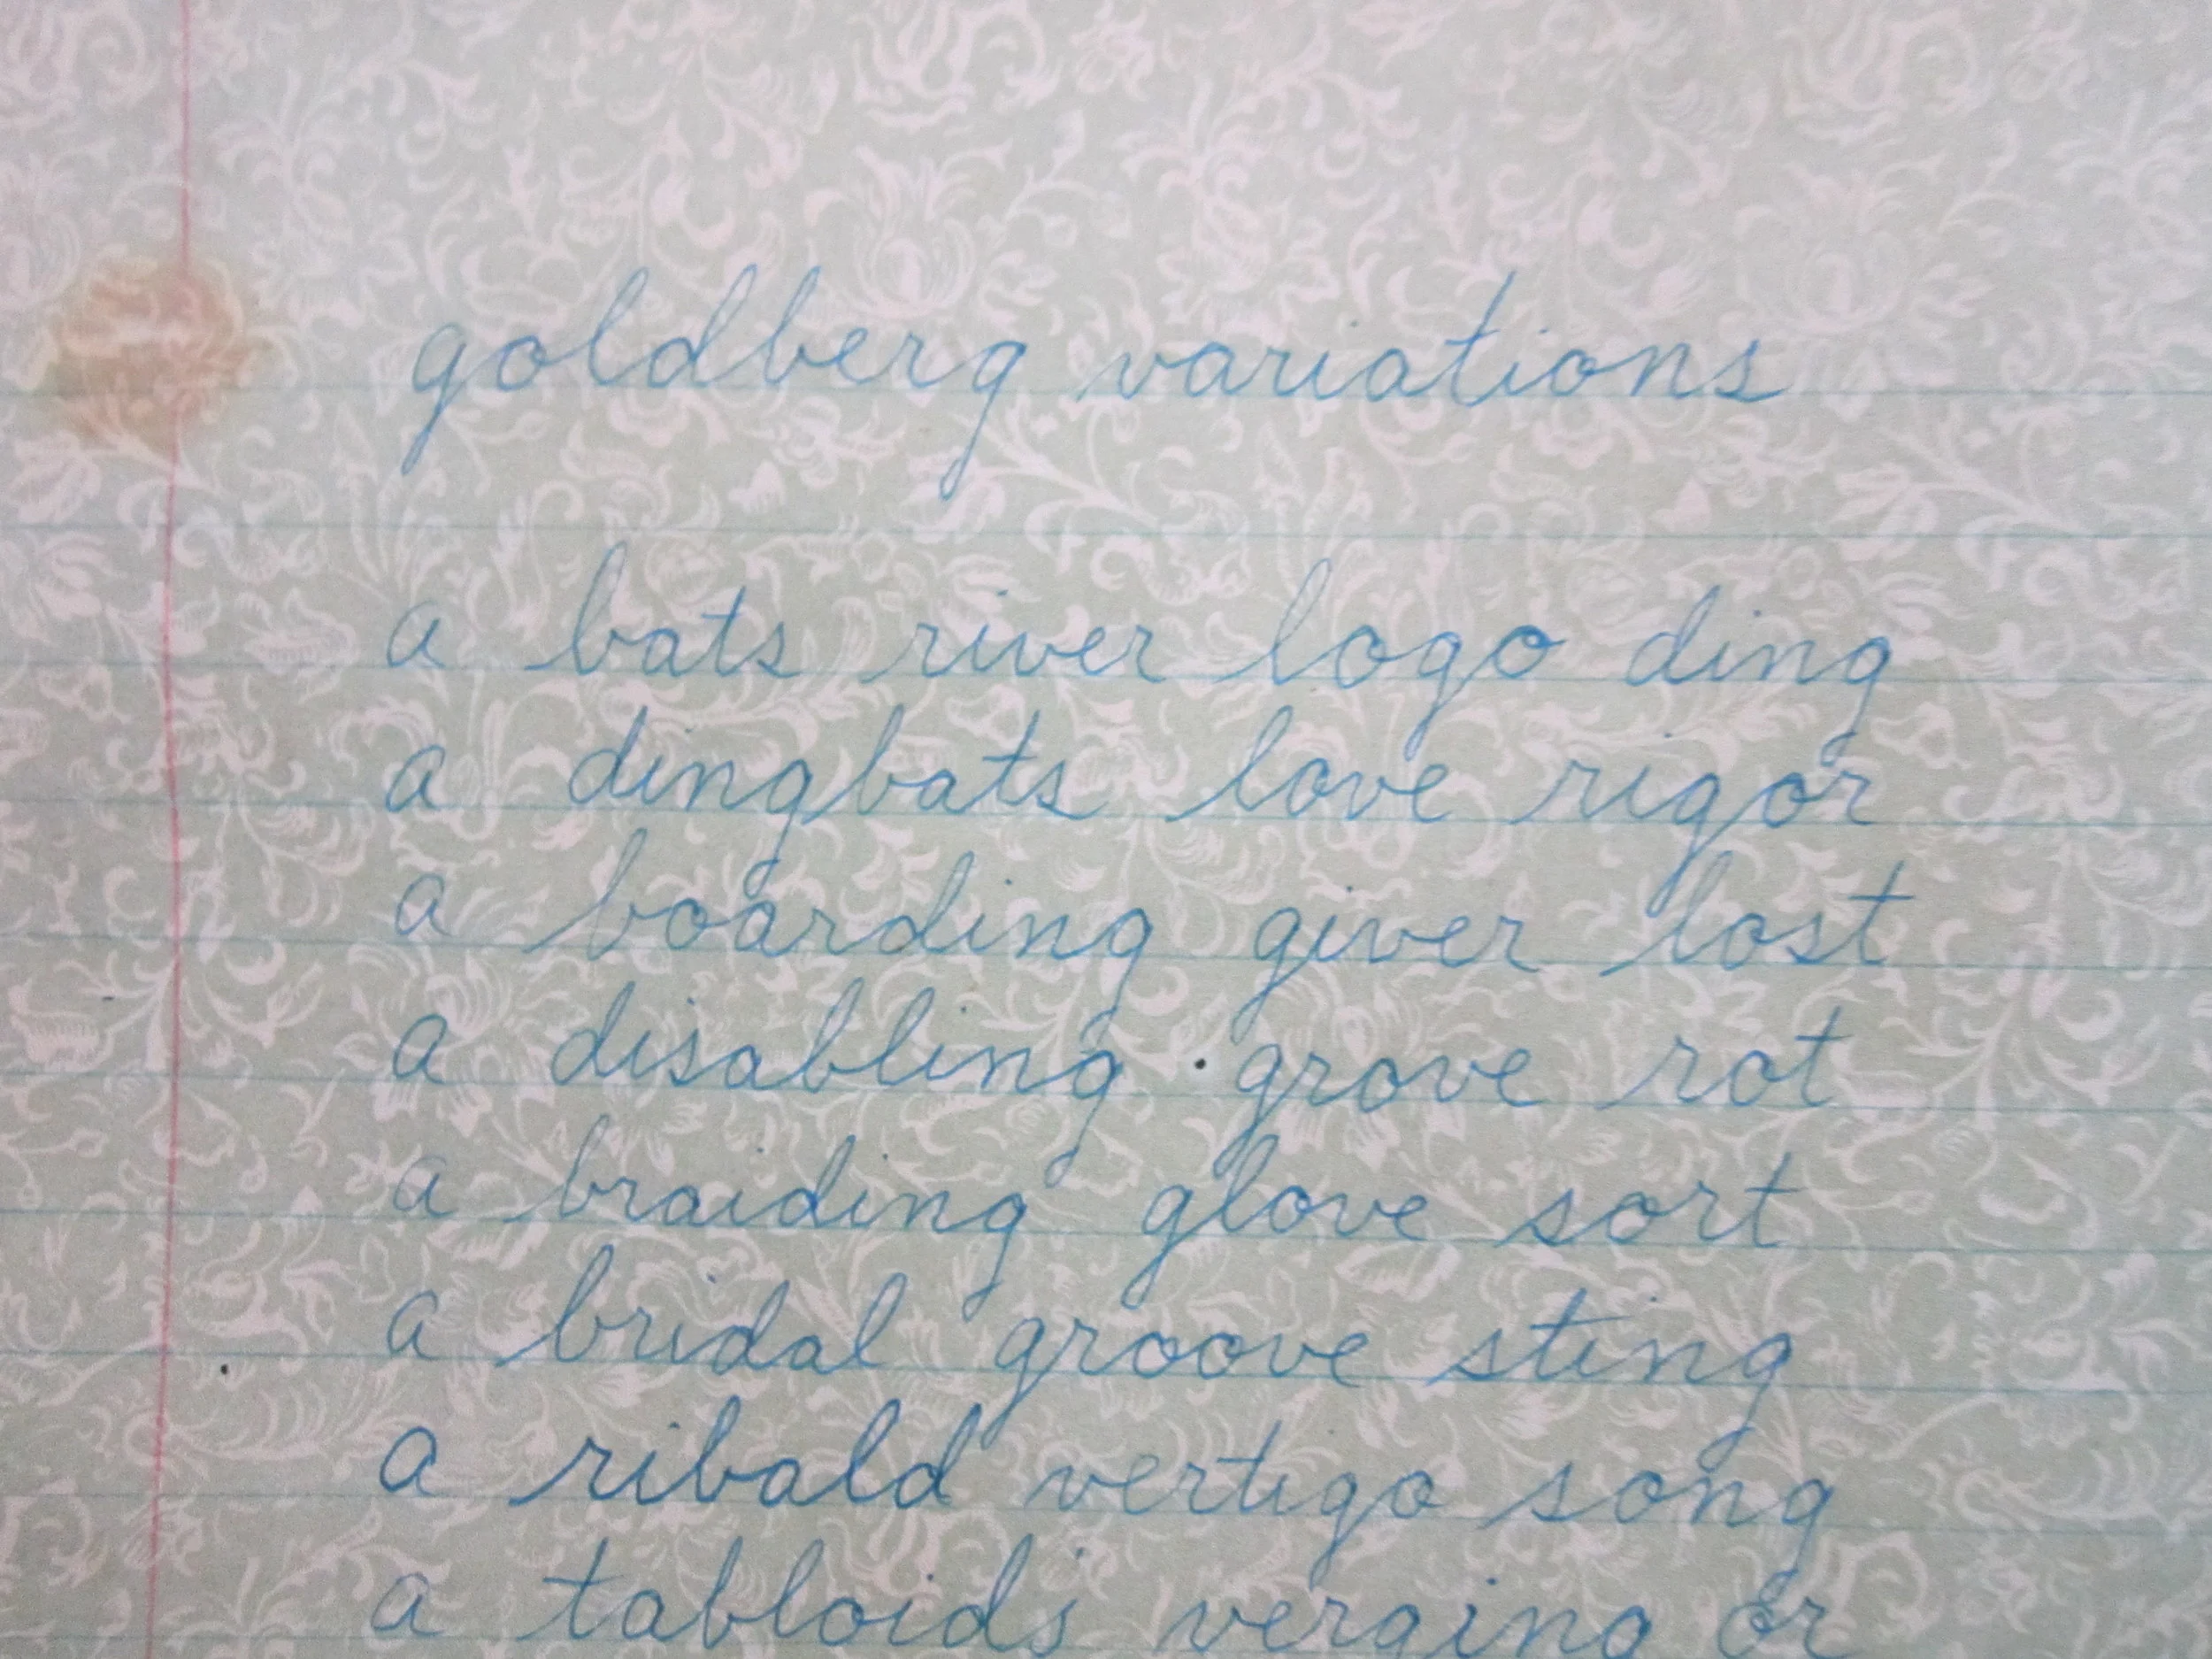 goldberg variations
a bats river logo ding
a dingbats love rigor
a boarding giver lost
a disabling grove rot
a braiding glove sort
a bridal groove sting
a ribald vertigo song
a tabloids verging or